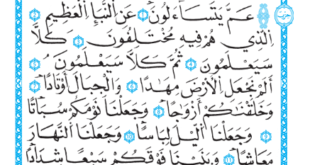 عَمَّ يَتَسَآءَلُونَ ١ عَنِ ٱلنَّبَإِ ٱلْعَظِيمِ ٢
ٱلَّذِى هُمْ فِيهِ مُخْتَلِفُونَ ٣ كَلَّا
سَيَعْلَمُونَ ٤ ثُمَّ كَلَّا سَيَعْلَمُونَ ٥
أَلَمْ نَجْعَلِ ٱلْأَرْضَ مِهَٰدًا ٦ وَٱلْجِبَالَ أَوْتَادًا ٧
وَخَلَقْنَٰكُمْ أَزْوَٰجًا ٨ وَجَعَلْنَا نَوْمَكُمْ سُبَاتًا
٩ وَجَعَلْنَا ٱلَّيْلَ لِبَاسًا ١٠ وَجَعَلْنَا ٱلنَّهَارَ
مَعَاشًا ١١ وَبَنَيْنَا فَوْقَكُمْ سَبْعًا شِدَادًا